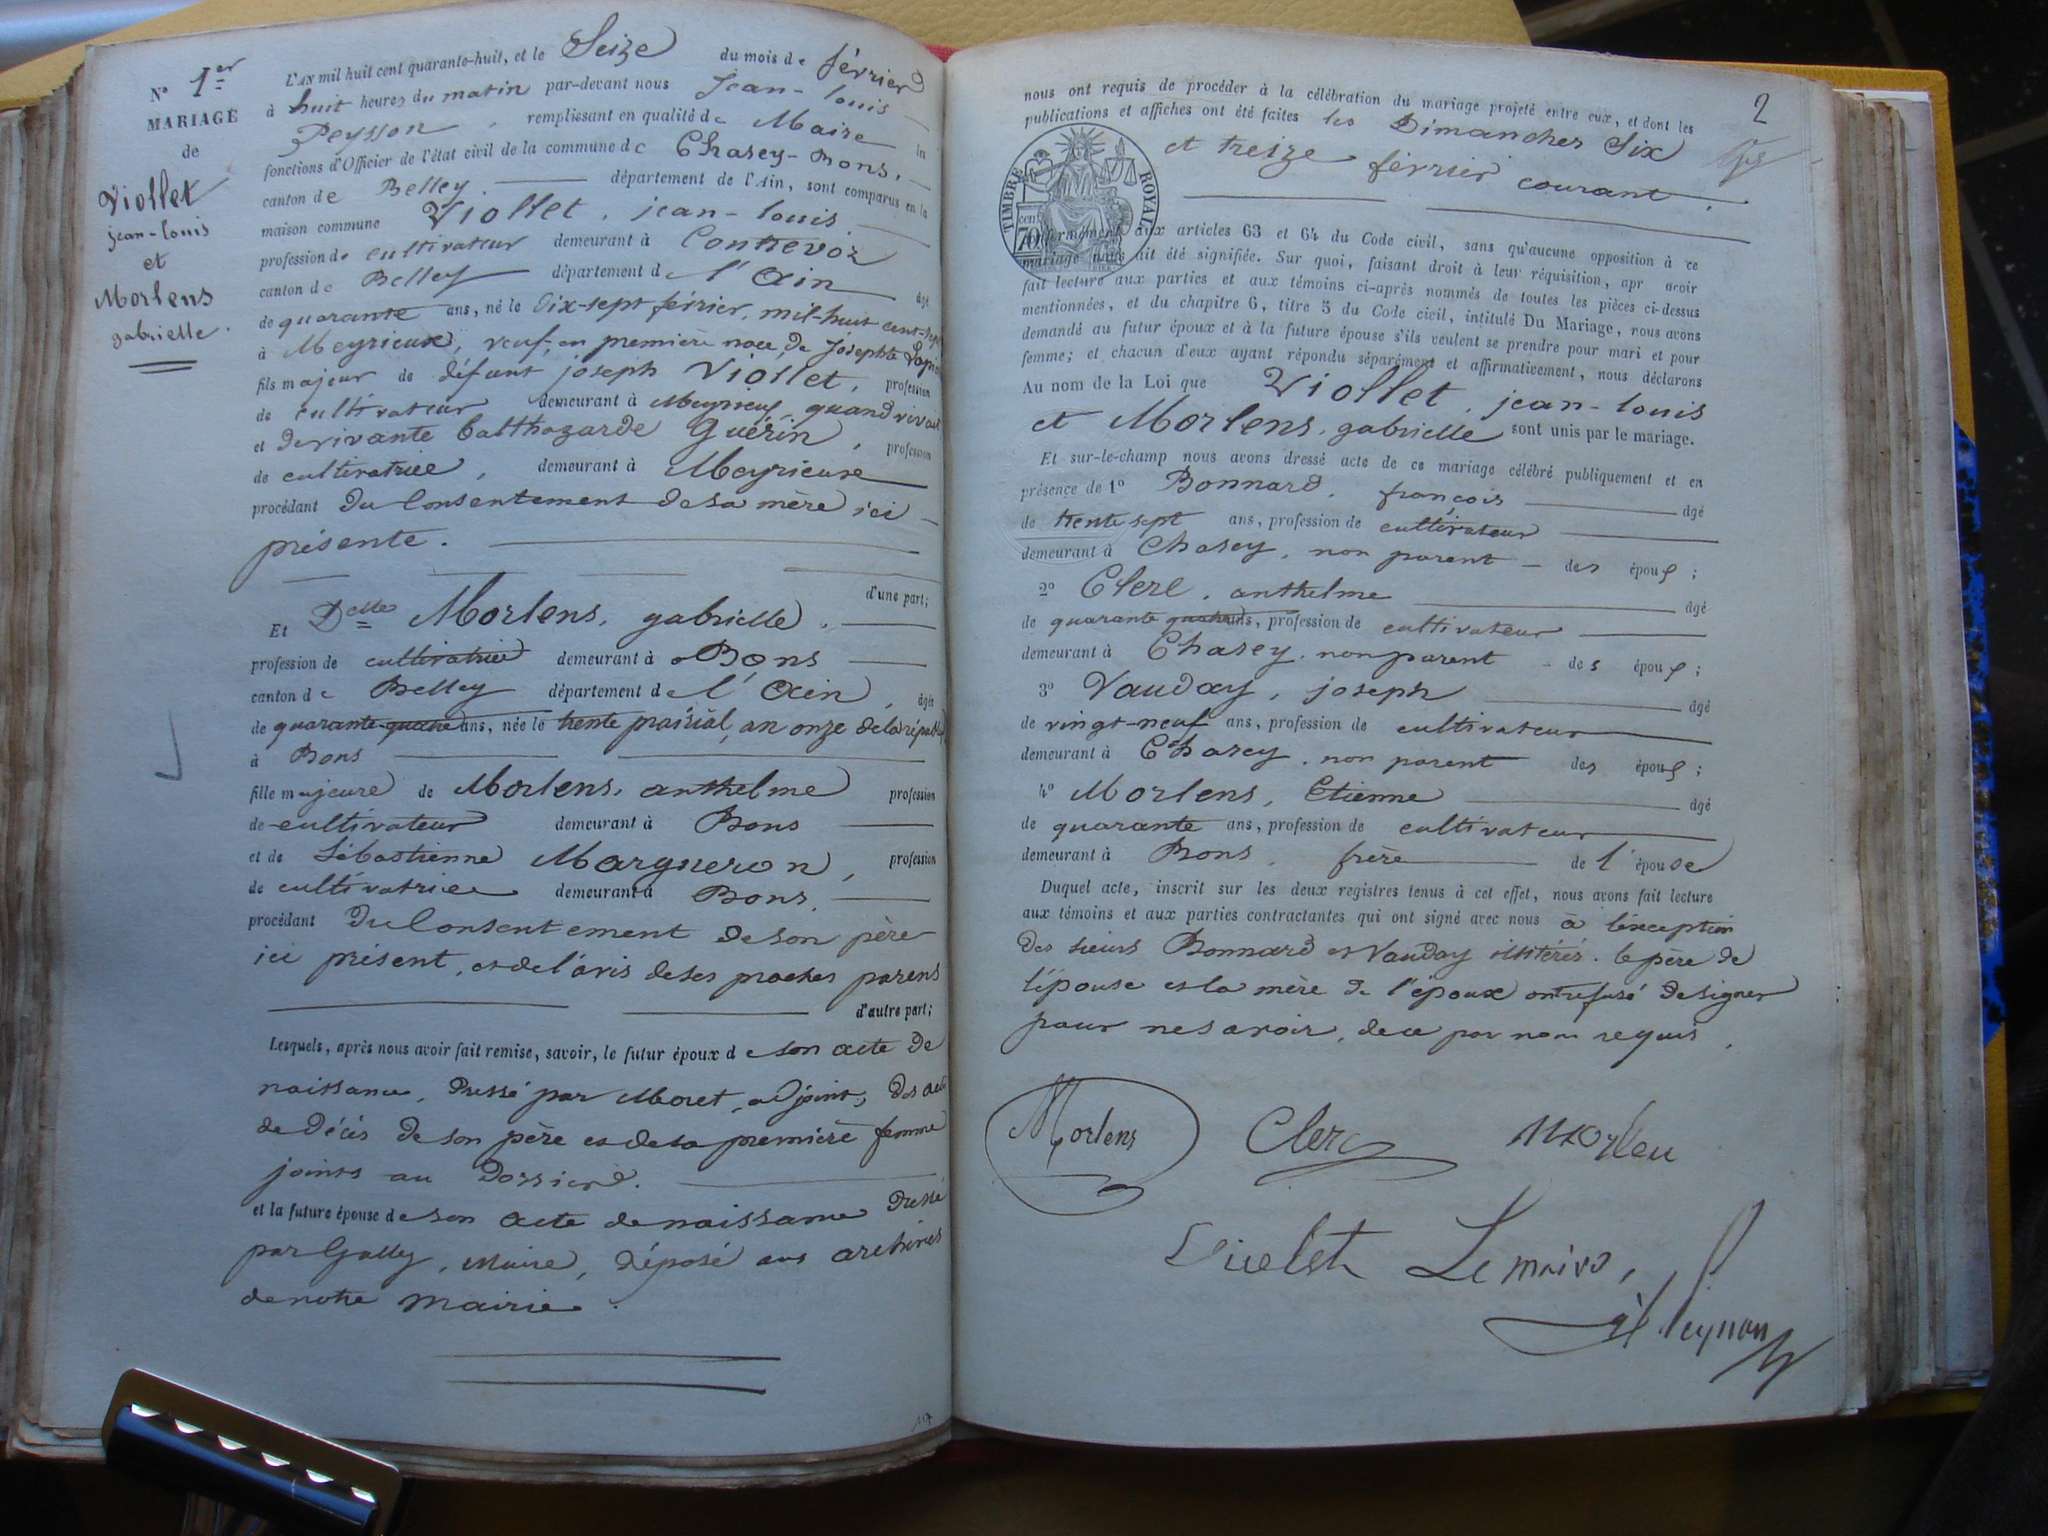 N° 1er
MARIAGE
de
Viollet
jean-louis
et
Morlens
gabrielle.
L'AN mil huit cent quarante-huit, et le Seize du mois de février
à huit heures du matin par-devant nous Jean-louis
Peysson, remplissant en qualité de Maire les
fonctions d'Officier de l'état civil de la commune de Chasey-Bons,
canton de Belley. département de l'Ain, sont comparus en la
maison commune Viollet, jean-louis
profession de cultivateur demeurant à Contrevoz
canton de Belley département de l'Ain âgé
de quarante ans, né le dix-sept février, mil-huit cent-sept
à Meyrieux, veuf, en première noce, de Josephte
fils majeur de défunt joseph Viollet, profession
de cultivateur demeurant à quand vivait
et de vivante balthazarde Guérin, profession
de cultivatrice, demeurant à Meyrieux
procédant du Consentement de sa mère ici
présente.
d'une part;
Et Delle Morlens, gabrielle.
profession de cultivatrice demeurant à Bons
canton de Belley département de l'Ain, âgée
de quarante-quatre ans, née le trente prairial, an onze de la répub
à Bons
fille majeure de Morlens, anthelme profession
de cultivateur demeurant à Bons
et de Sébastienne Margueron, profession
de cultivatrice demeurant à Bons.
procédant du Consentement de son père
ici présent, et de l'avis de ses proches parens
d'autre part;
Lesquels, après nous avoir fait remise, savoir, le futur époux de son acte de
naissance, dressé par Moret, adjoint, des
de Décès de son père et de sa première femme
joints au Dossier.
et la future épouse de son acte de naissance dressé
par Gally, Maire, déposé aux archives
de notre mairie.
2
nous ont requis de procéder à la célébration du mariage projeté entre eux, et dont les
publications et affiches ont été faites les Dimanches Six
et treize février courant.
TIMBRE ROYAL
70 cent
conformément aux articles 63 et 64 du Code civil, sans qu'aucune opposition à ce
mariage nous ait été signifiée. Sur quoi, faisant droit à leur réquisition, apr avoir
fait lecture aux parties et aux témoins ci-après nommés de toutes les pièces ci-dessus
mentionnées, et du chapitre 6, titre 5 du Code civil, intitulé Du Mariage, nous avons
demandé au futur époux et à la future épouse s'ils veulent se prendre pour mari et pour
femme; et chacun d'eux ayant répondu séparément et affirmativement, nous déclarons
Au nom de la Loi que Viollet, jean-louis
et Morlens, gabrielle sont unis par le mariage.
Et sur-le-champ nous avons dressé acte de ce mariage célébré publiquement et en
présence de 1° Bonnard, françois âgé
de trente sept ans, profession de cultivateur
demeurant à Chasey, non parent des époux;
2° Clerc, anthelme âgé
de quarante quatre ans, profession de cultivateur
demeurant à Chasey, non parent des époux;
3° Vauday, joseph âgé
de vingt-neuf ans, profession de cultivateur
demeurant à Chasey, non parent des époux;
4° Morlens, Etienne âgé
de quarante ans, profession de cultivateur
demeurant à Bons, frère de l'épouse
Duquel acte, inscrit sur les deux registres tenus à cet effet, nous avons fait lecture
aux témoins et aux parties contractantes qui ont signé avec nous à l'exception
des sieurs Bonnard et Vauday illitérés. le père de
l'épouse et la mère de l'époux ont refusé de signer
pour ne savoir, de ce par nous requis.
Morlens Clerc Morlen
Le maire,